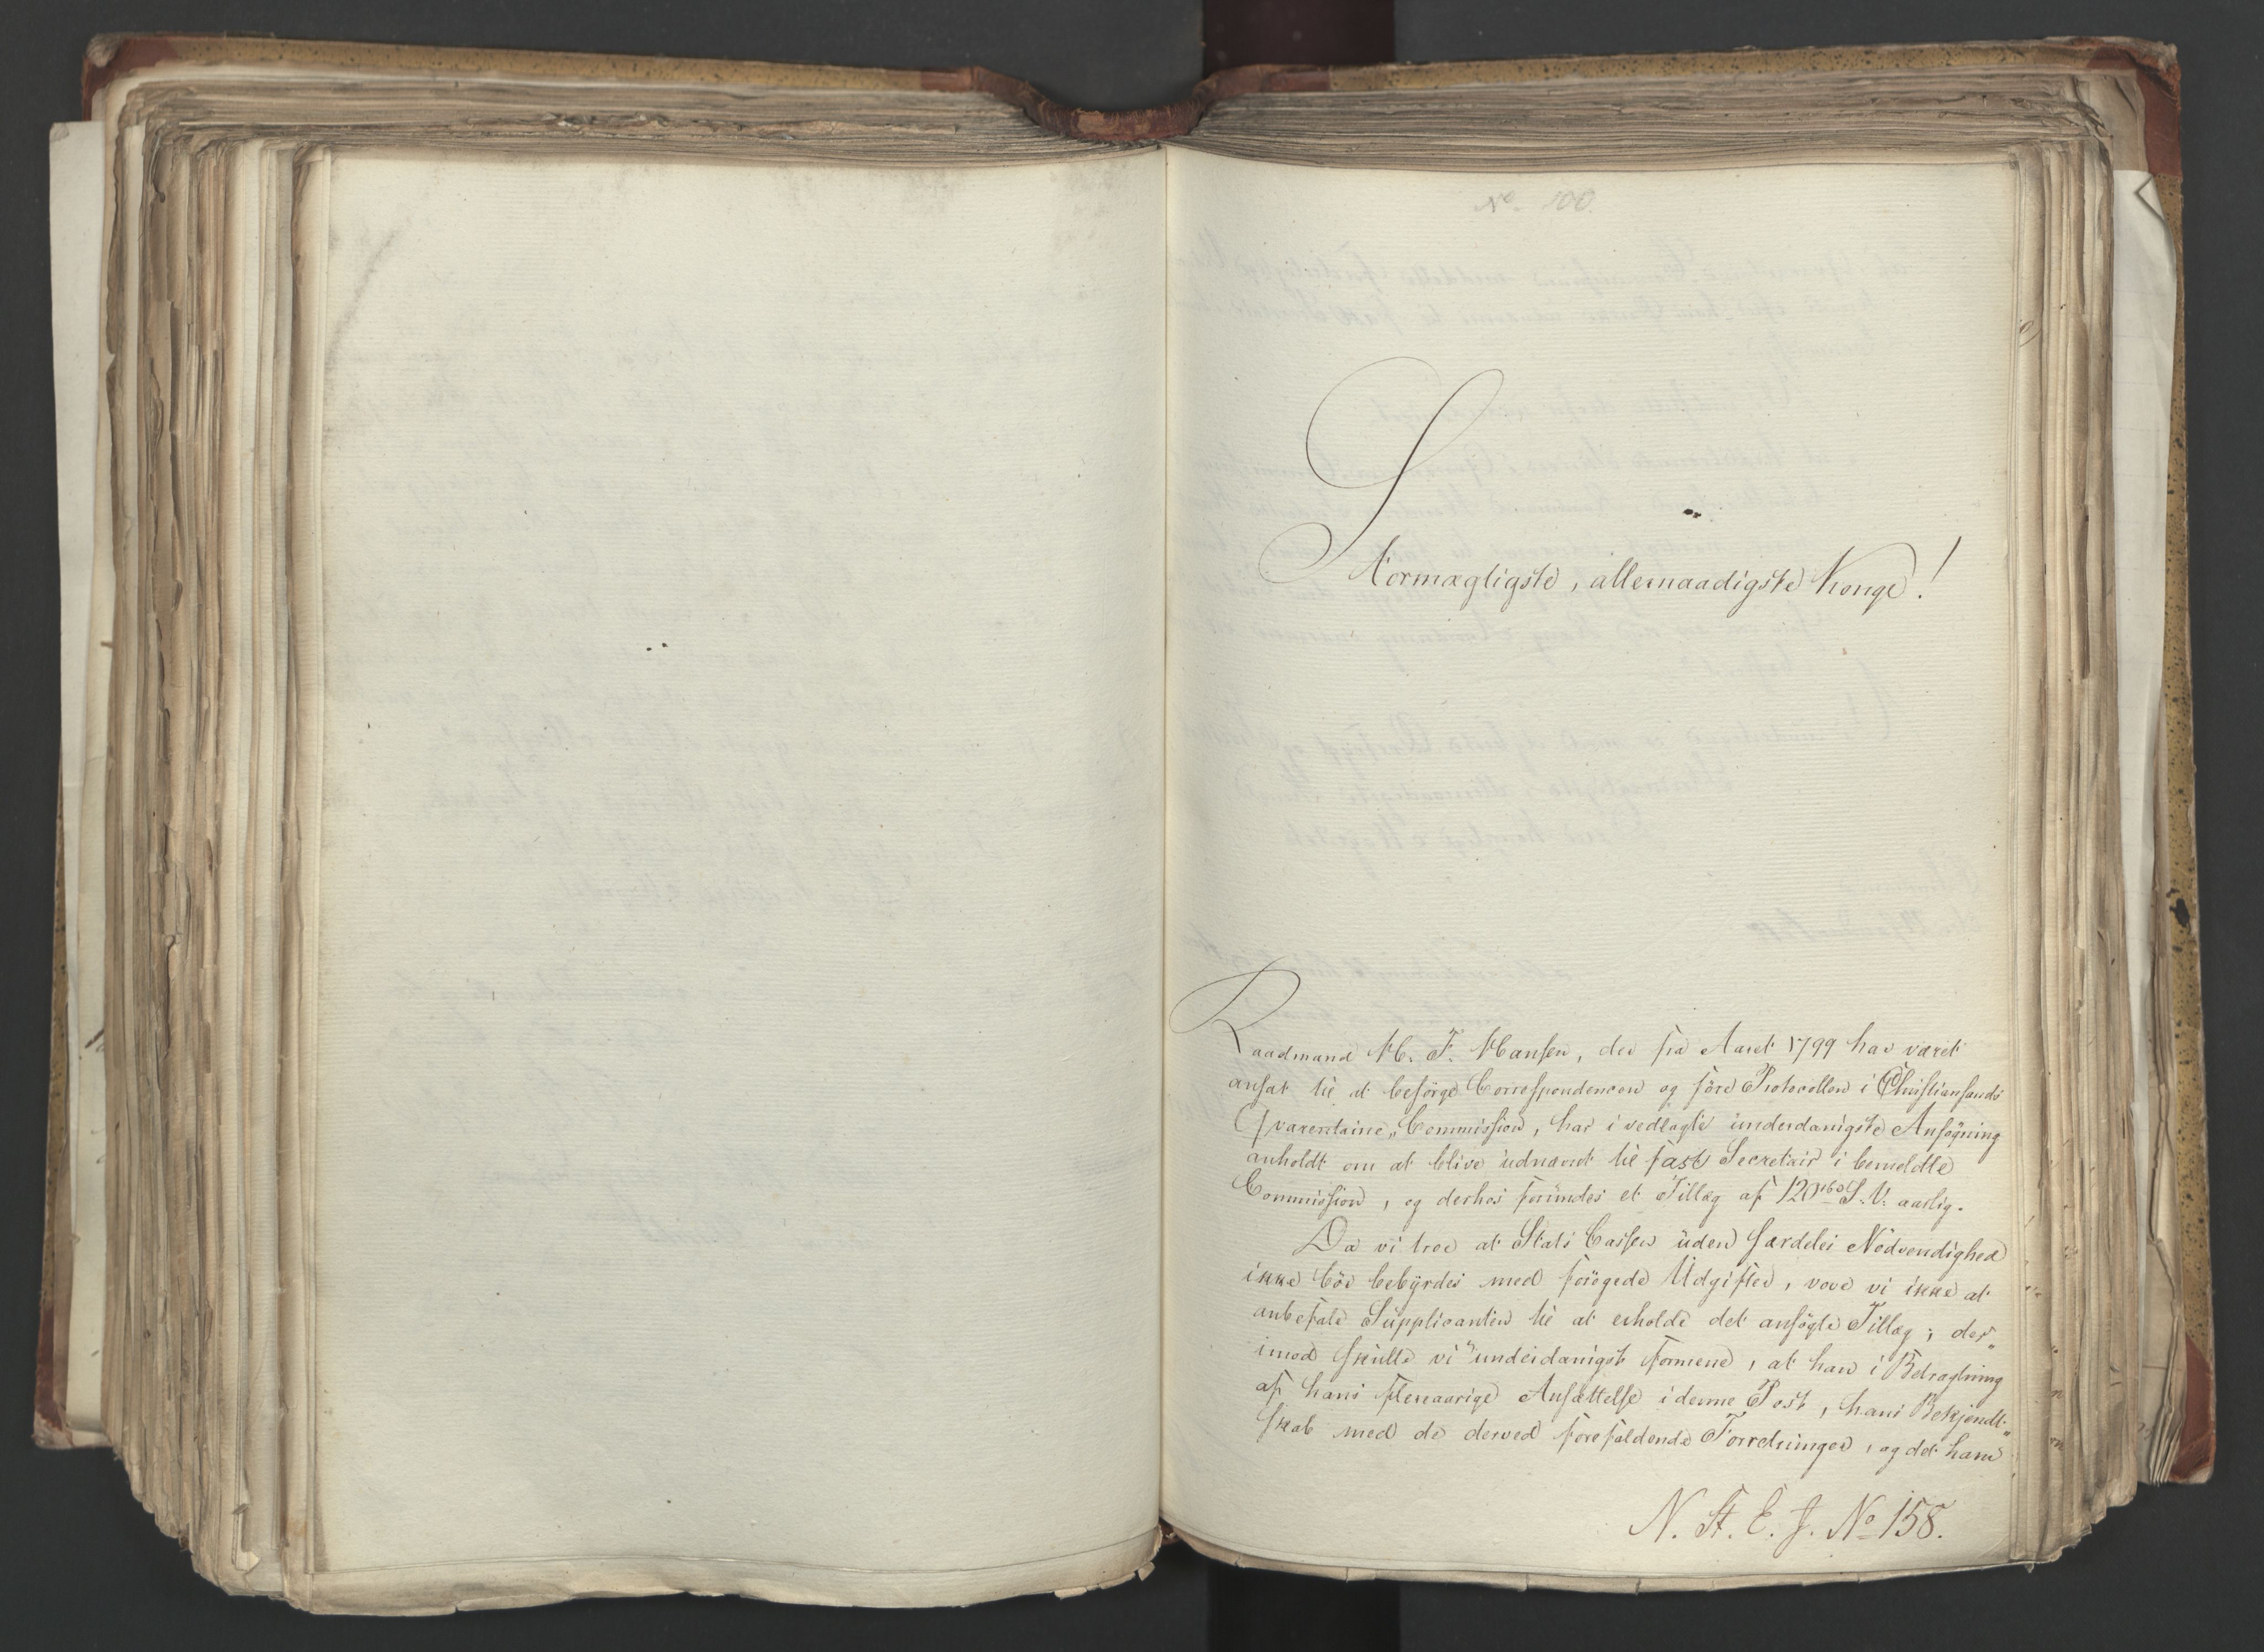 No. 100.
Stormægtigste, allernaadigste Konge!
Raadmand H. F. Hansen, der fra Aaret 1799 har været
ansat til at besørge Correspondencen og føre Protocollen i Christiansands
Qvarentaine„Commission, har i vedlagte underdanigste Ansøgning
anholdt om at blive udnævnt til fast Secretair i bemeldte
Commission, og derhos forundes et Tillæg af 120 rbd S. V. aarlig.
Da vi troe at Stats Cassen uden særdeles Nødvendighed
ikke bør bebyrdes med forøgede Udgifter, vove vi ikke at
anbefale Supplicanten til at erholde det ansøgte Tillæg; der„
imod skulle vi underdanigst formene, at han i Betragtning
af hans fleraarige Ansættelse i denne Post, hans Bekjendt„
skab med de derved forefaldende Forretninger, og det ham
N. St. E. J. No 158.